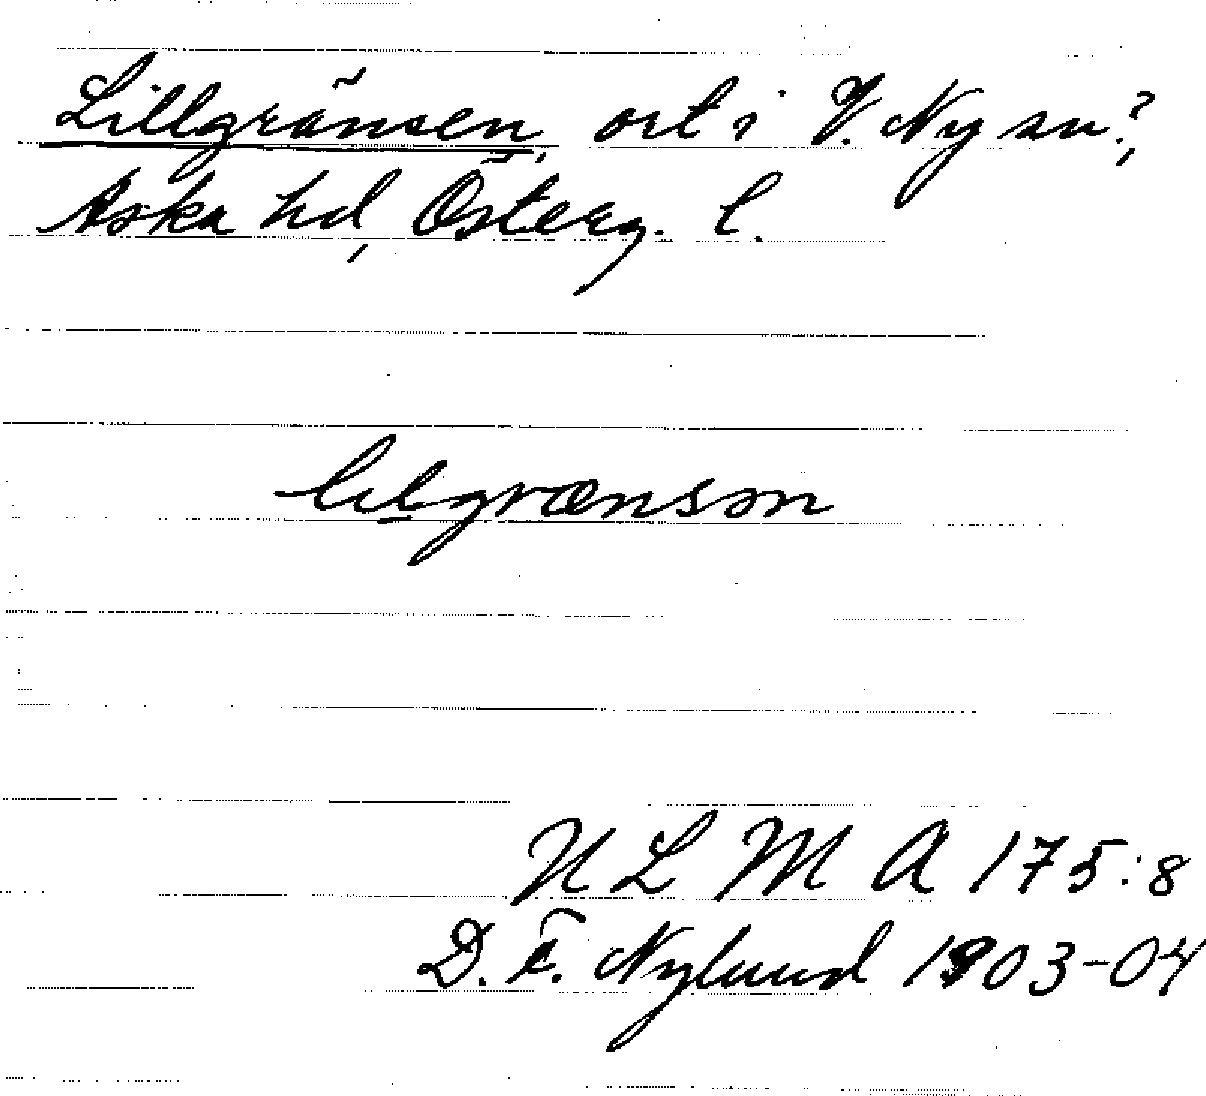 Lillgränsen, ort i V. Ny sn?,
Aska hd, Österg. l.
lilgrænsən
ULMA 175:8
D. F. Nylund 1903-04